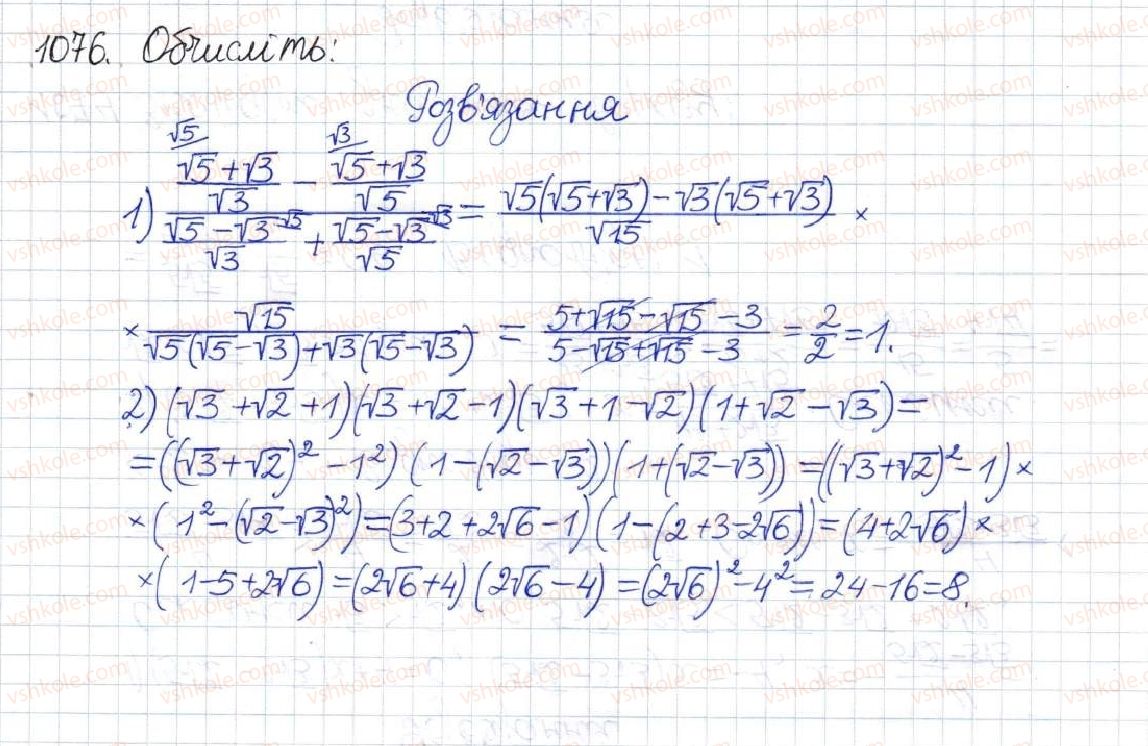 1076. Обчисліть:
Розв'язання
1) (√5+√3)/√3 − (√5+√3)/√5 / (√5−√3)/√3 + (√5−√3)/√5 = (√5(√5+√3)−√3(√5+√3))/√15 ×
× √15/(√5(√5−√3)+√3(√5−√3)) = (5+√15−√15−3)/(5−√15+√15−3) = 2/2 = 1.
2) (√3+√2+1)(√3+√2−1)(√3+1−√2)(1+√2−√3)=
=((√3+√2)²−1²)(1−(√2−√3))(1+(√2−√3))=((√3+√2)²−1)×
×(1²−(√2−√3)²)=(3+2+2√6−1)(1−(2+3−2√6))=(4+2√6)×
×(1−5+2√6)=(2√6+4)(2√6−4)=(2√6)²−4²=24−16=8.